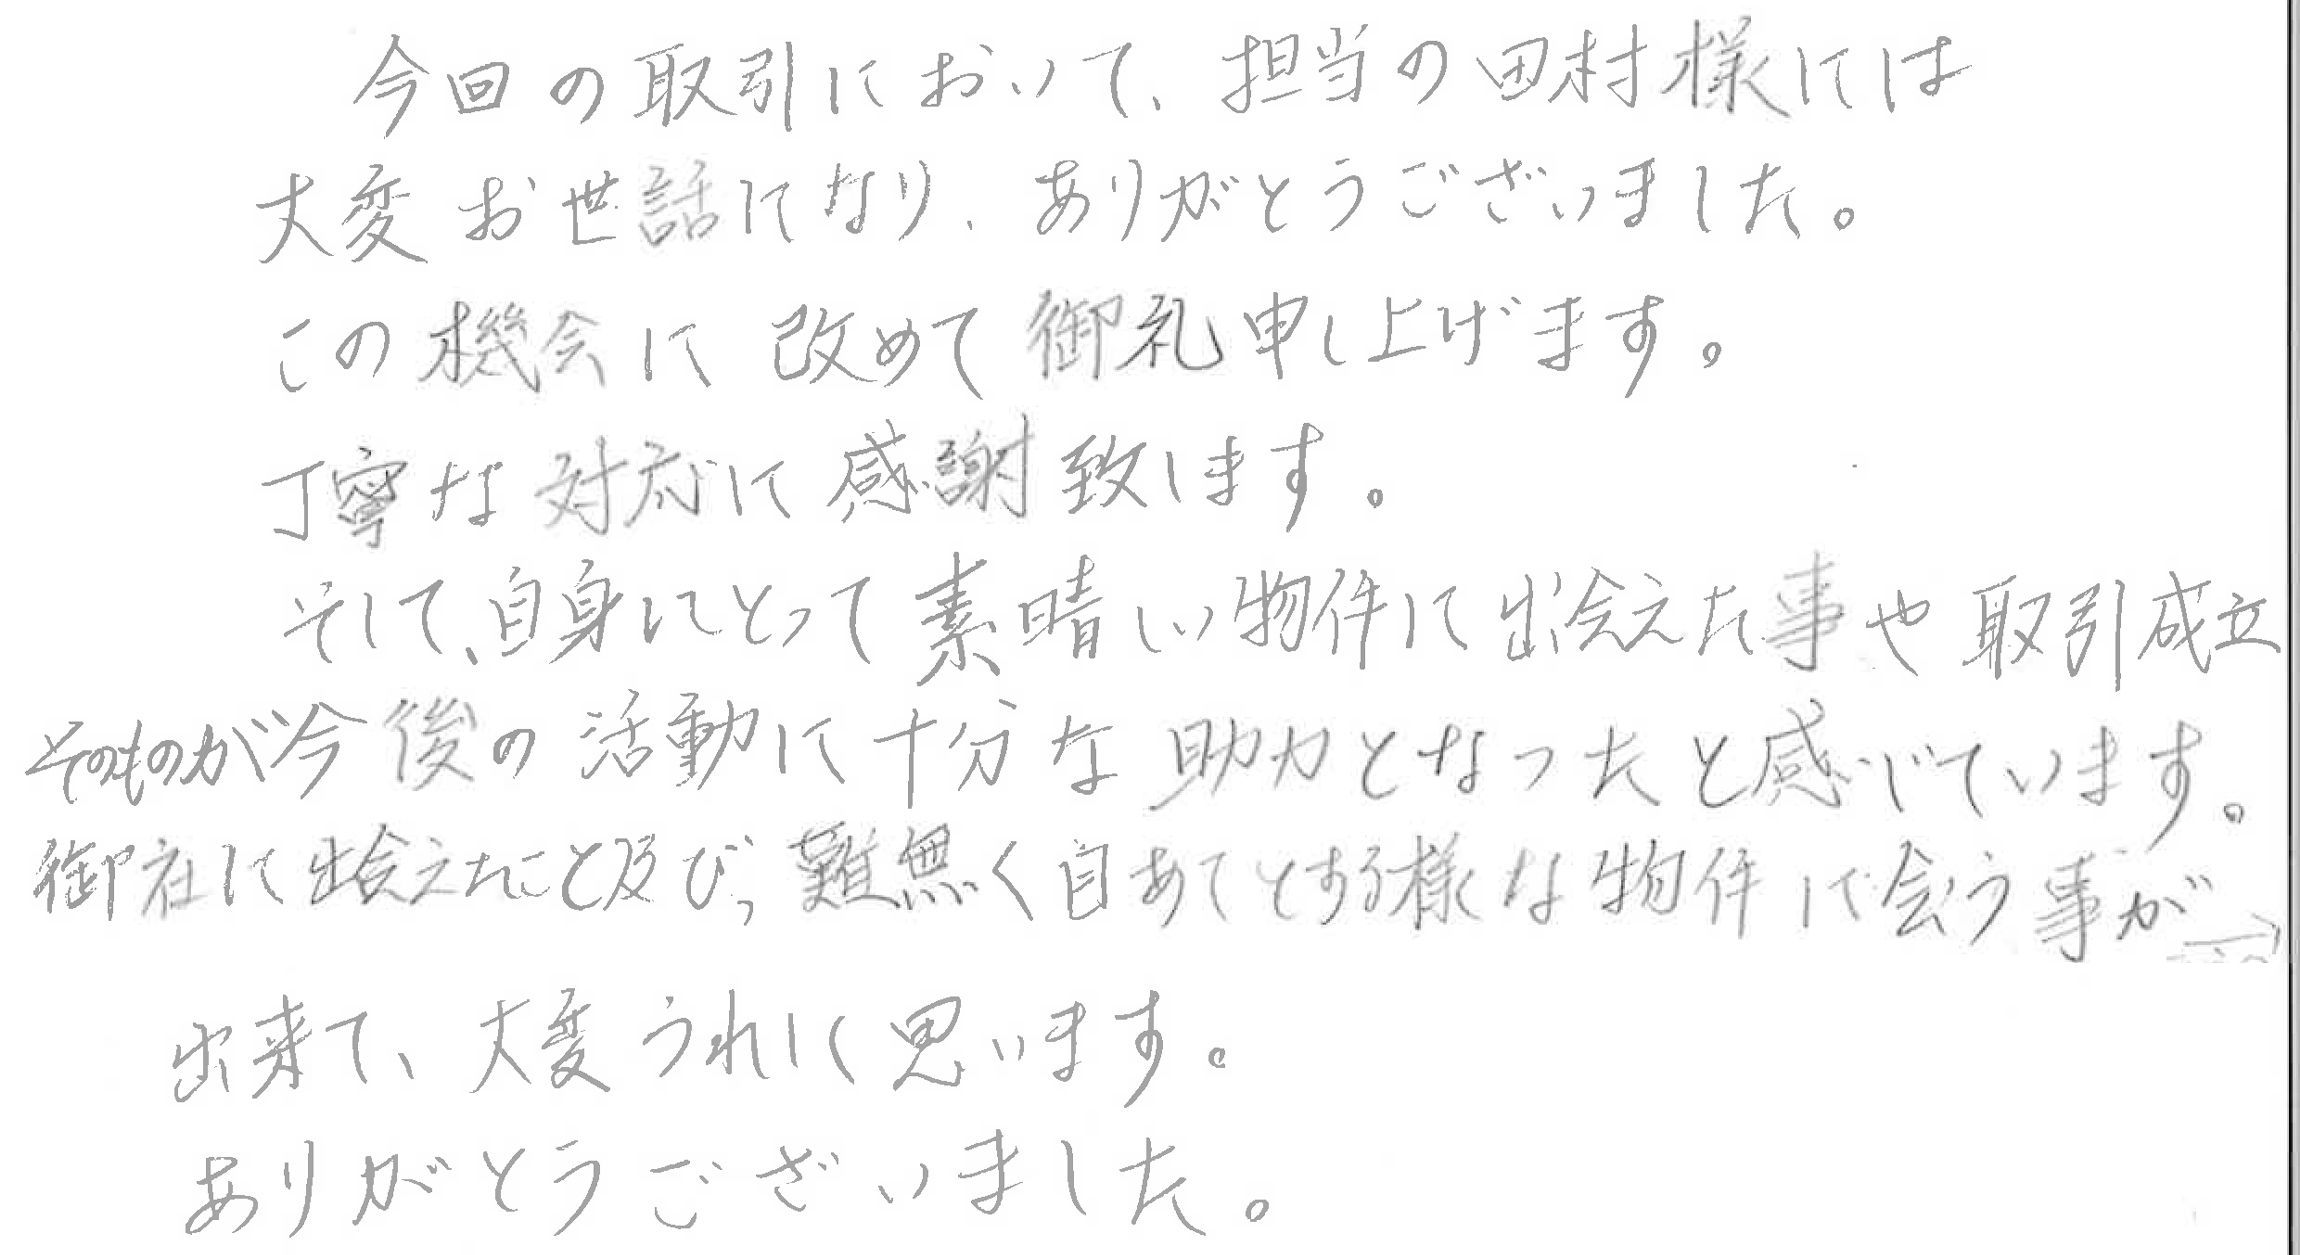 今回の取引において、担当の田村様には
大変お世話になり、ありがとうございました。
この機会に改めて御礼申し上げます。
丁寧な対応に感謝致します。
そして、自身にとって素晴しい物件に出会えた事や取引成立
そのものが今後の活動に十分な助力となったと感じています。
御社に出会えたこと及び、難無く目あてとする様な物件に会う事が→
出来て、大変うれしく思います。
ありがとうございました。